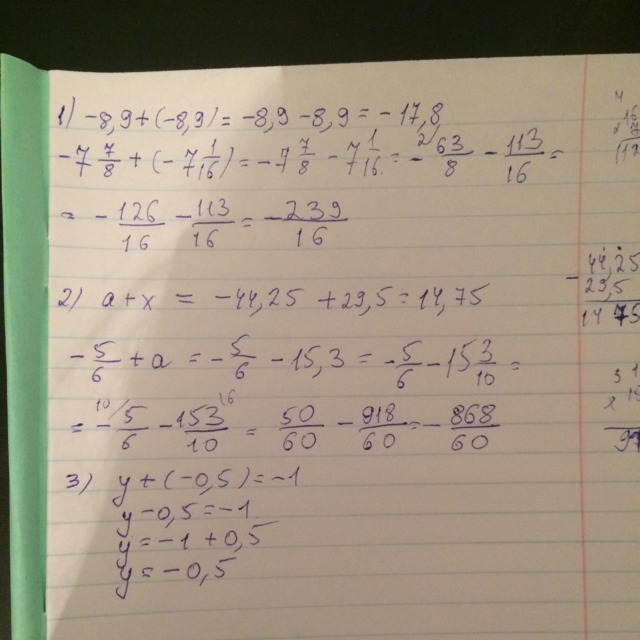 1) -8,9+(-8,9)= -8,9 -8,9 = -17,8
-7 7/8 + (-7 1/16) = -7 7/8 - 7 1/16 = - 2/ 63/8 - 113/16 =
= - 126/16 - 113/16 = - 239/16
2) a+x = -44,25 +29,5 = 14,75
- 5/6 + a = - 5/6 - 15,3 = - 5/6 - 15 3/10 =
= 10/ - 5/6 - 153/10 16 = 50/60 - 918/60 = - 868/60
3) y+(-0,5)=-1
y-0,5=-1
y=-1+0,5
y=-0,5
- 44,25
29,5
14 75